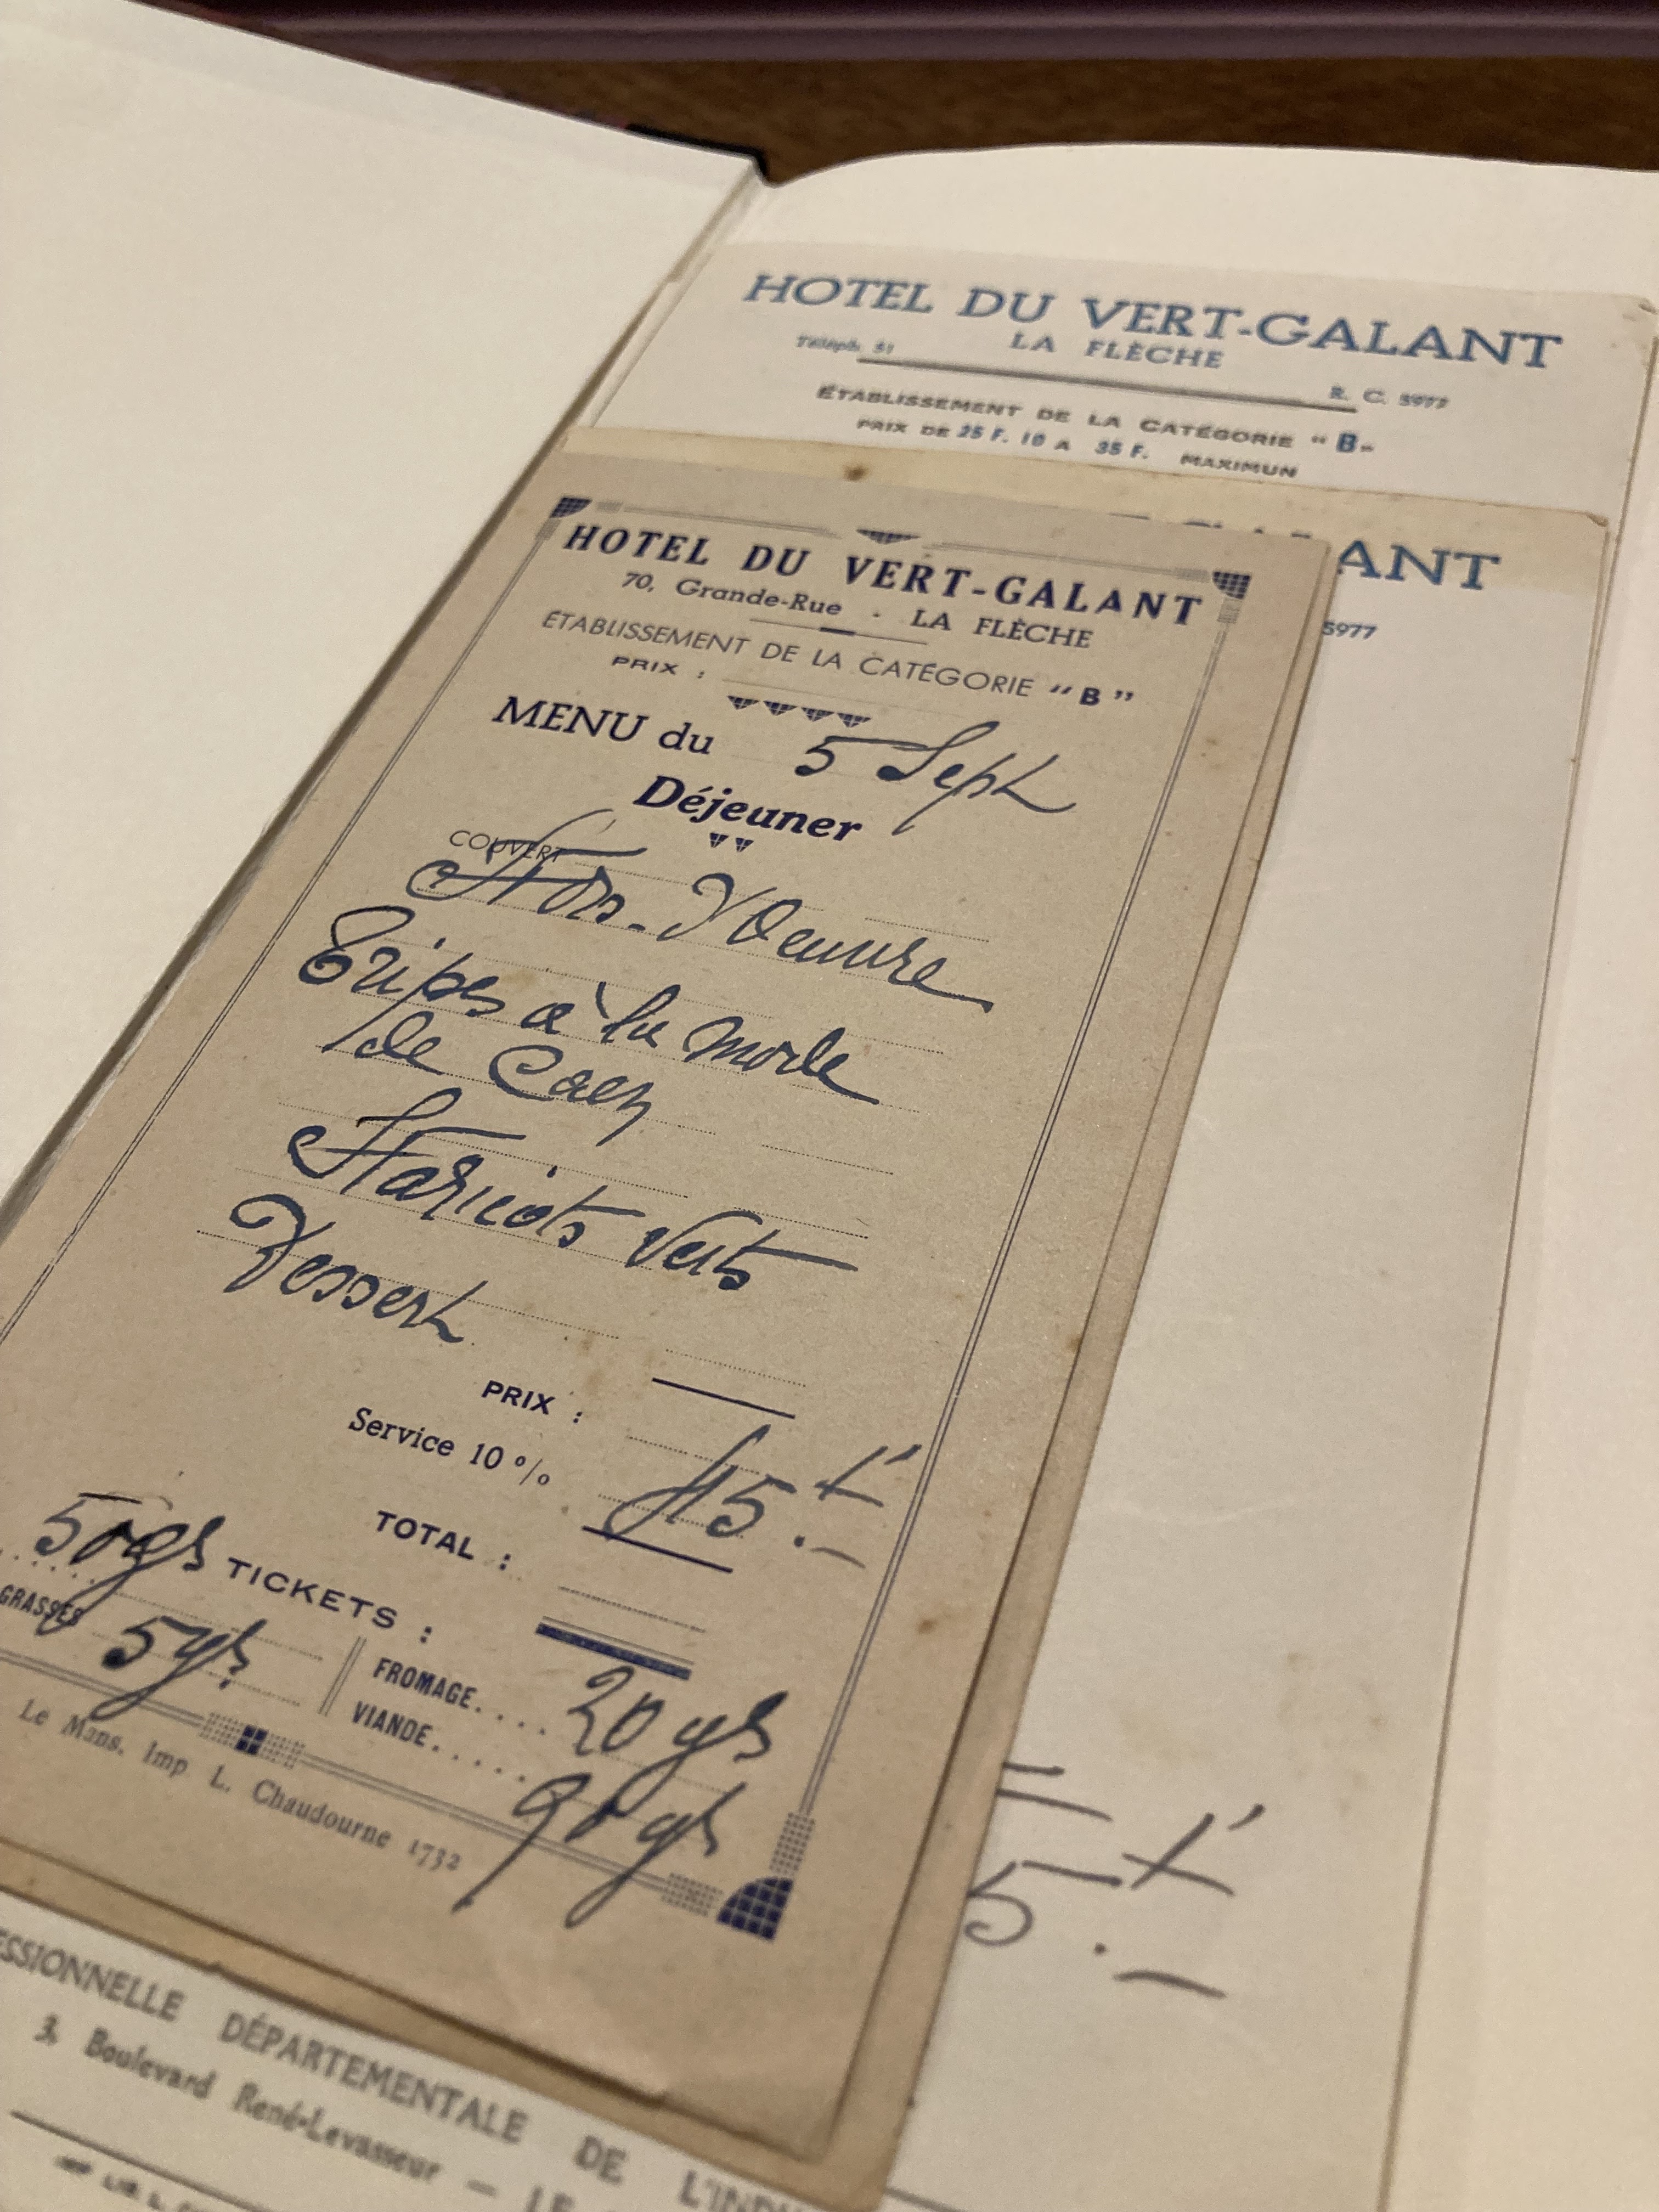 HOTEL DU VERT-GALANT
LA FLÈCHE
Téléph. 51
R. C. 5977
ÉTABLISSEMENT DE LA CATÉGORIE "B"
PRIX DE 25 F. 10 A 35 F. MAXIMUN
ANT
5977
HOTEL DU VERT-GALANT
70, Grande-Rue - LA FLÈCHE
ÉTABLISSEMENT DE LA CATÉGORIE "B"
PRIX :
MENU du 5 Sept
Déjeuner
COUVERT
Hors-d'Oeuvre
Tripes à la mode
de Caen
Haricots verts
Dessert
PRIX :
Service 10 %
45.
TOTAL :
50 gr TICKETS :
GRASSES 5 gr.
FROMAGE.... 20 gr
VIANDE..... 90 gr
Le Mans. Imp L. Chaudourne 1732
5.-
ESSIONNELLE DÉPARTEMENTALE DE L'INDU
3, Boulevard René-Levasseur — LE